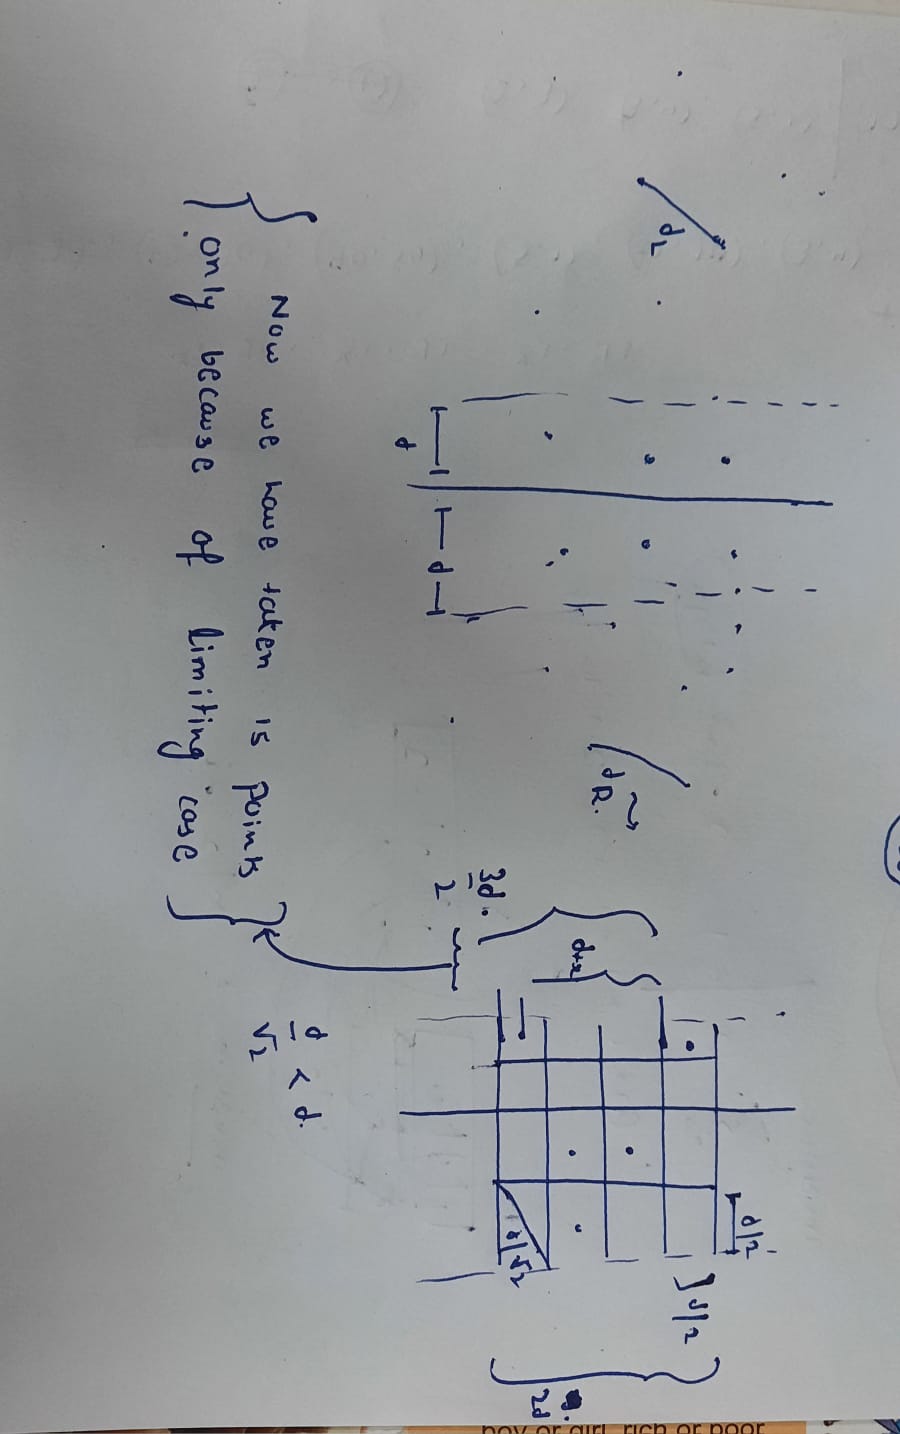 d_L
d_R.
d
d
3d/2
d+x
d/2
d/2
d/√2
2d
d/√2 < d.
Now we have taken 15 points
only because of limiting case
boy or girl, rich or poor